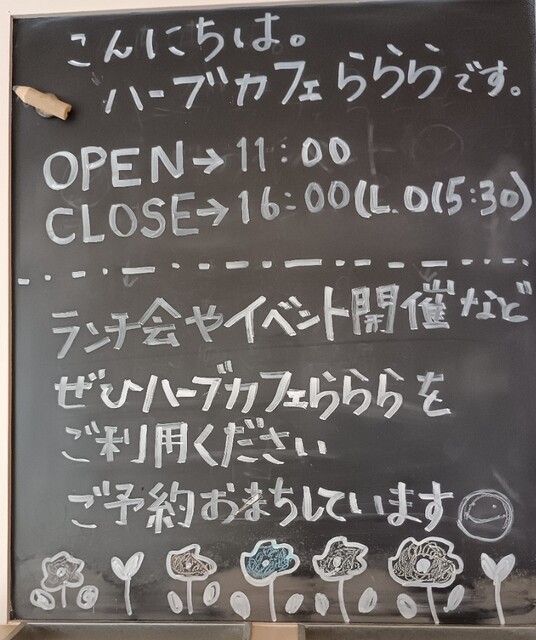 こんにちは。
ハーブカフェららら です。
OPEN→11:00
CLOSE→16:00(L.O15:30)
ランチ会やイベント開催など
ぜひハーブカフェらららを
ご利用ください
ご予約おまちしています